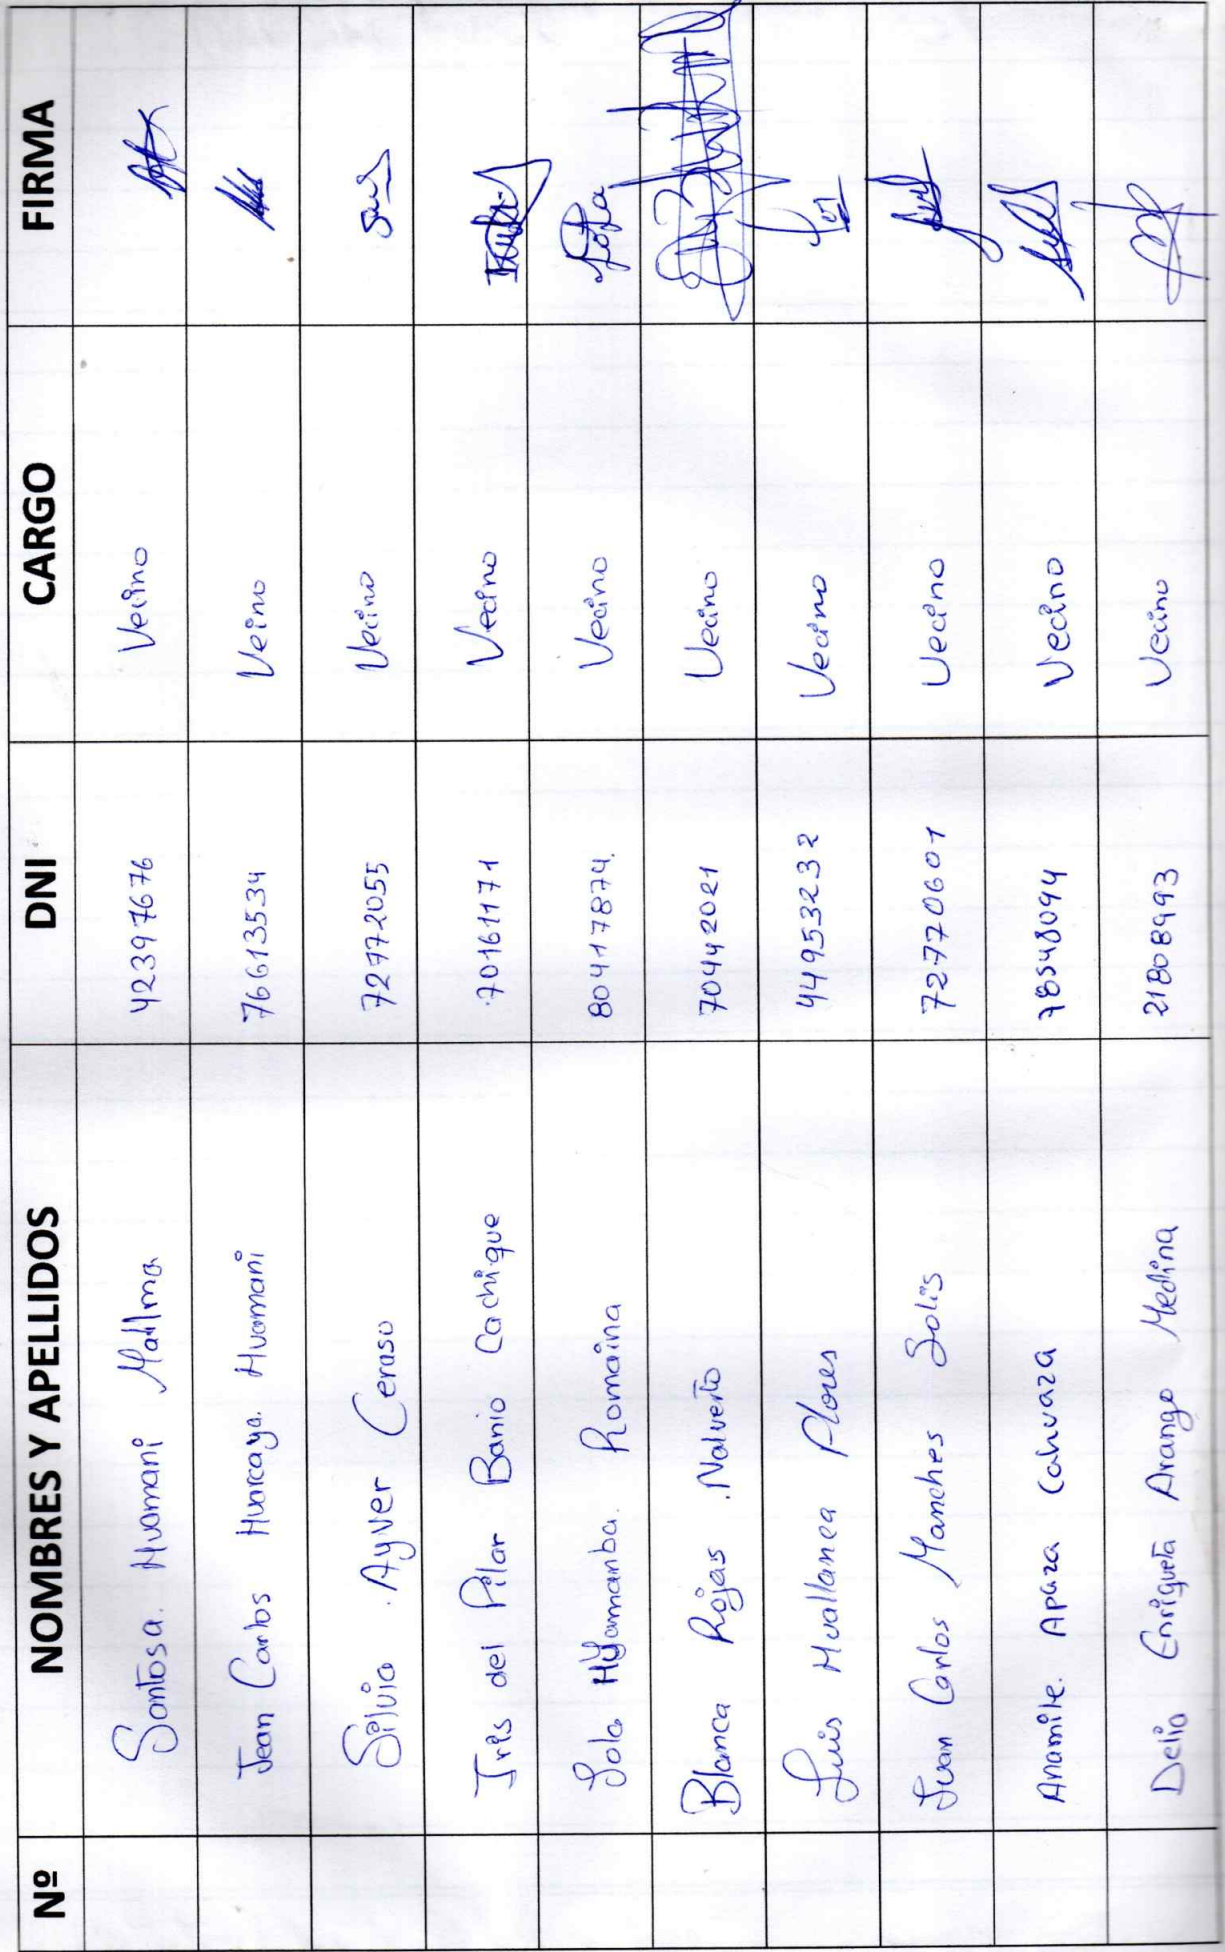 Nº NOMBRES Y APELLIDOS DNI CARGO FIRMA
Santosa. Huamani Mallma 42397676 Vecino
Jean Carlos Huarcaya. Huamani 76613534 Veino
Silvia . Ayver Ceraso 72772055 Vecino
Iris del Pilar Banio Cachique 70161171 Vecino
Romaina 80417874. Vecino
Blanca Rojas . Nalverto 70442021 Vecino
Luis Huallanca Flores 44953232 Vecino
Juan Carlos Manches Solis 72770601 Vecino
Anamile. Apaza Cahuaza 78548094 Vecino
Delia Enriqueta Arango Medina 21808993 Vecino